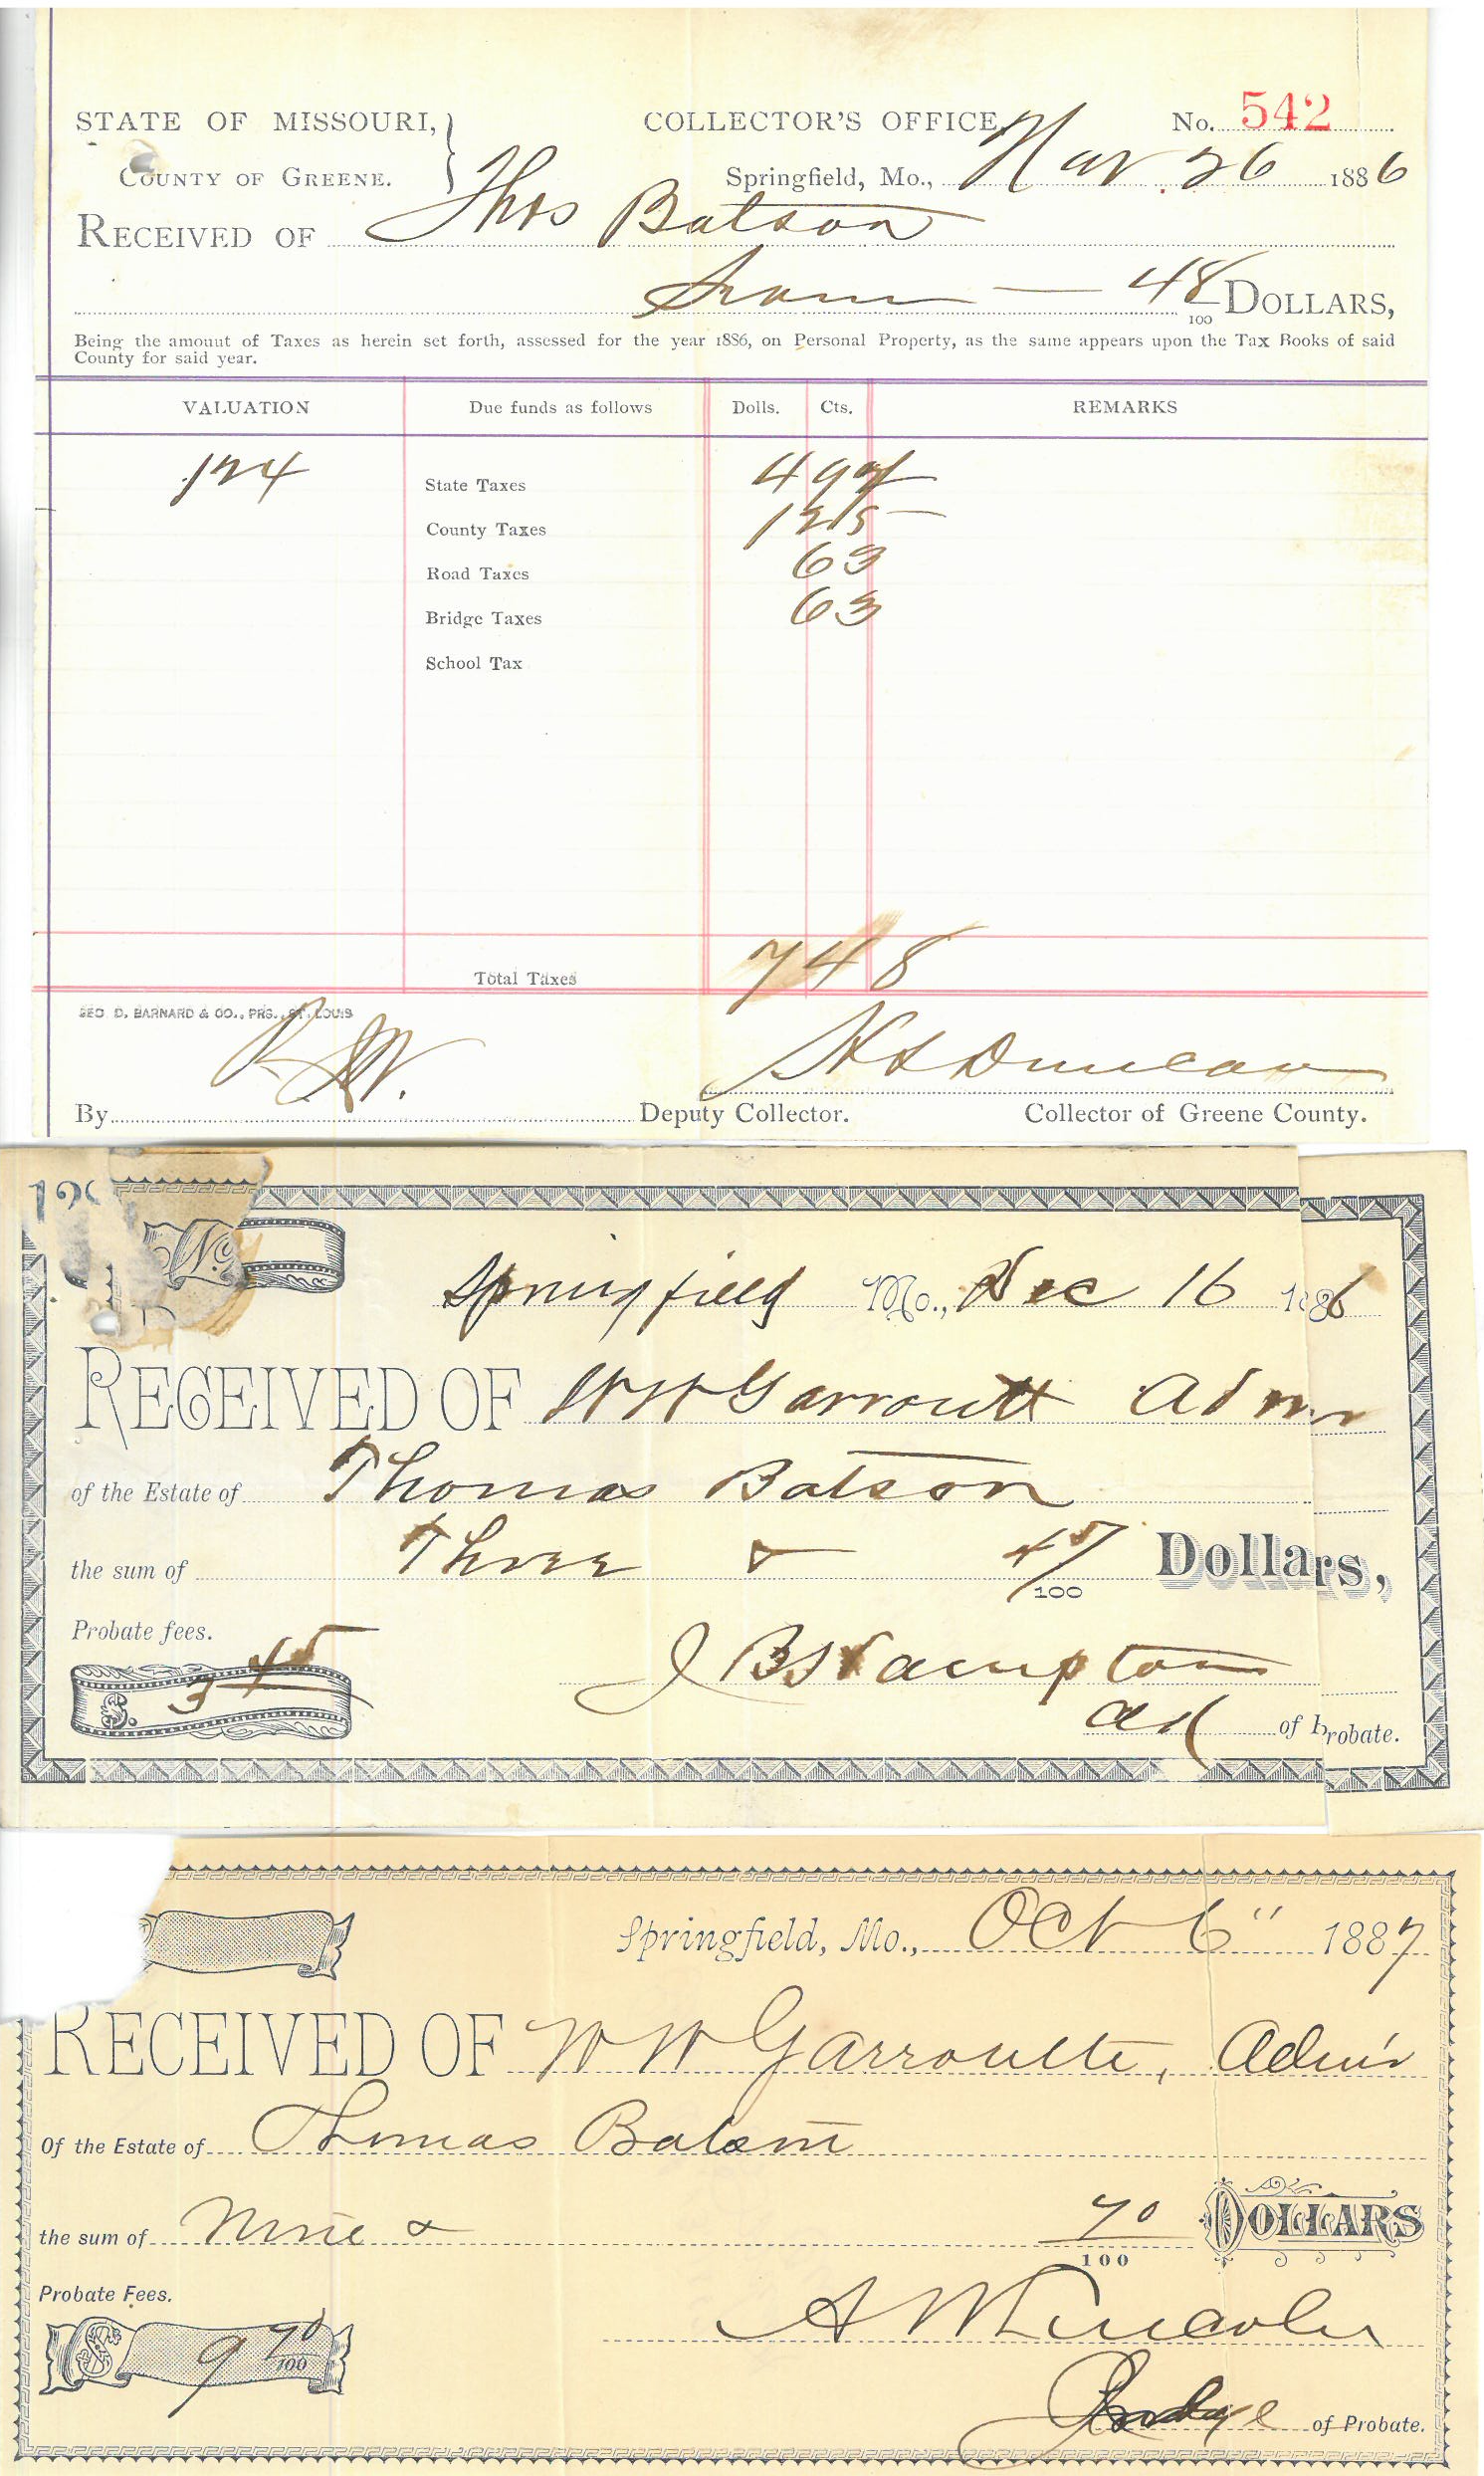 STATE OF MISSOURI,
COUNTY OF GREENE.
COLLECTOR'S OFFICE,
No. 542
Springfield, Mo., Nov. 26 1886
RECEIVED OF Thos Batson
Seven — 48/100 DOLLARS,
Being the amount of Taxes as herein set forth, assessed for the year 1886, on Personal Property, as the same appears upon the Tax Books of said
County for said year.
VALUATION Due funds as follows Dolls. Cts. REMARKS
124 State Taxes 4 97
County Taxes 1 25
Road Taxes 63
Bridge Taxes 63
School Tax
Total Taxes 7 48
GEO. D. BARNARD & CO., PRS., ST. LOUIS
By Deputy Collector.
Duncan
Collector of Greene County.
No
Springfield Mo., Dec 16 1886
RECEIVED OF W W Garroutt Admr
of the Estate of Thomas Batson
the sum of Three & 45/100 Dollars,
Probate fees.
$ 3 45
J B
of Probate.
Springfield, Mo., Oct 6" 1887
RECEIVED OF W W Garroutte, Adm'r
Of the Estate of Thomas Batson
the sum of Nine & 70/100 DOLLARS
Probate Fees.
$ 9 70/100
A M Lincoln
Judge of Probate.